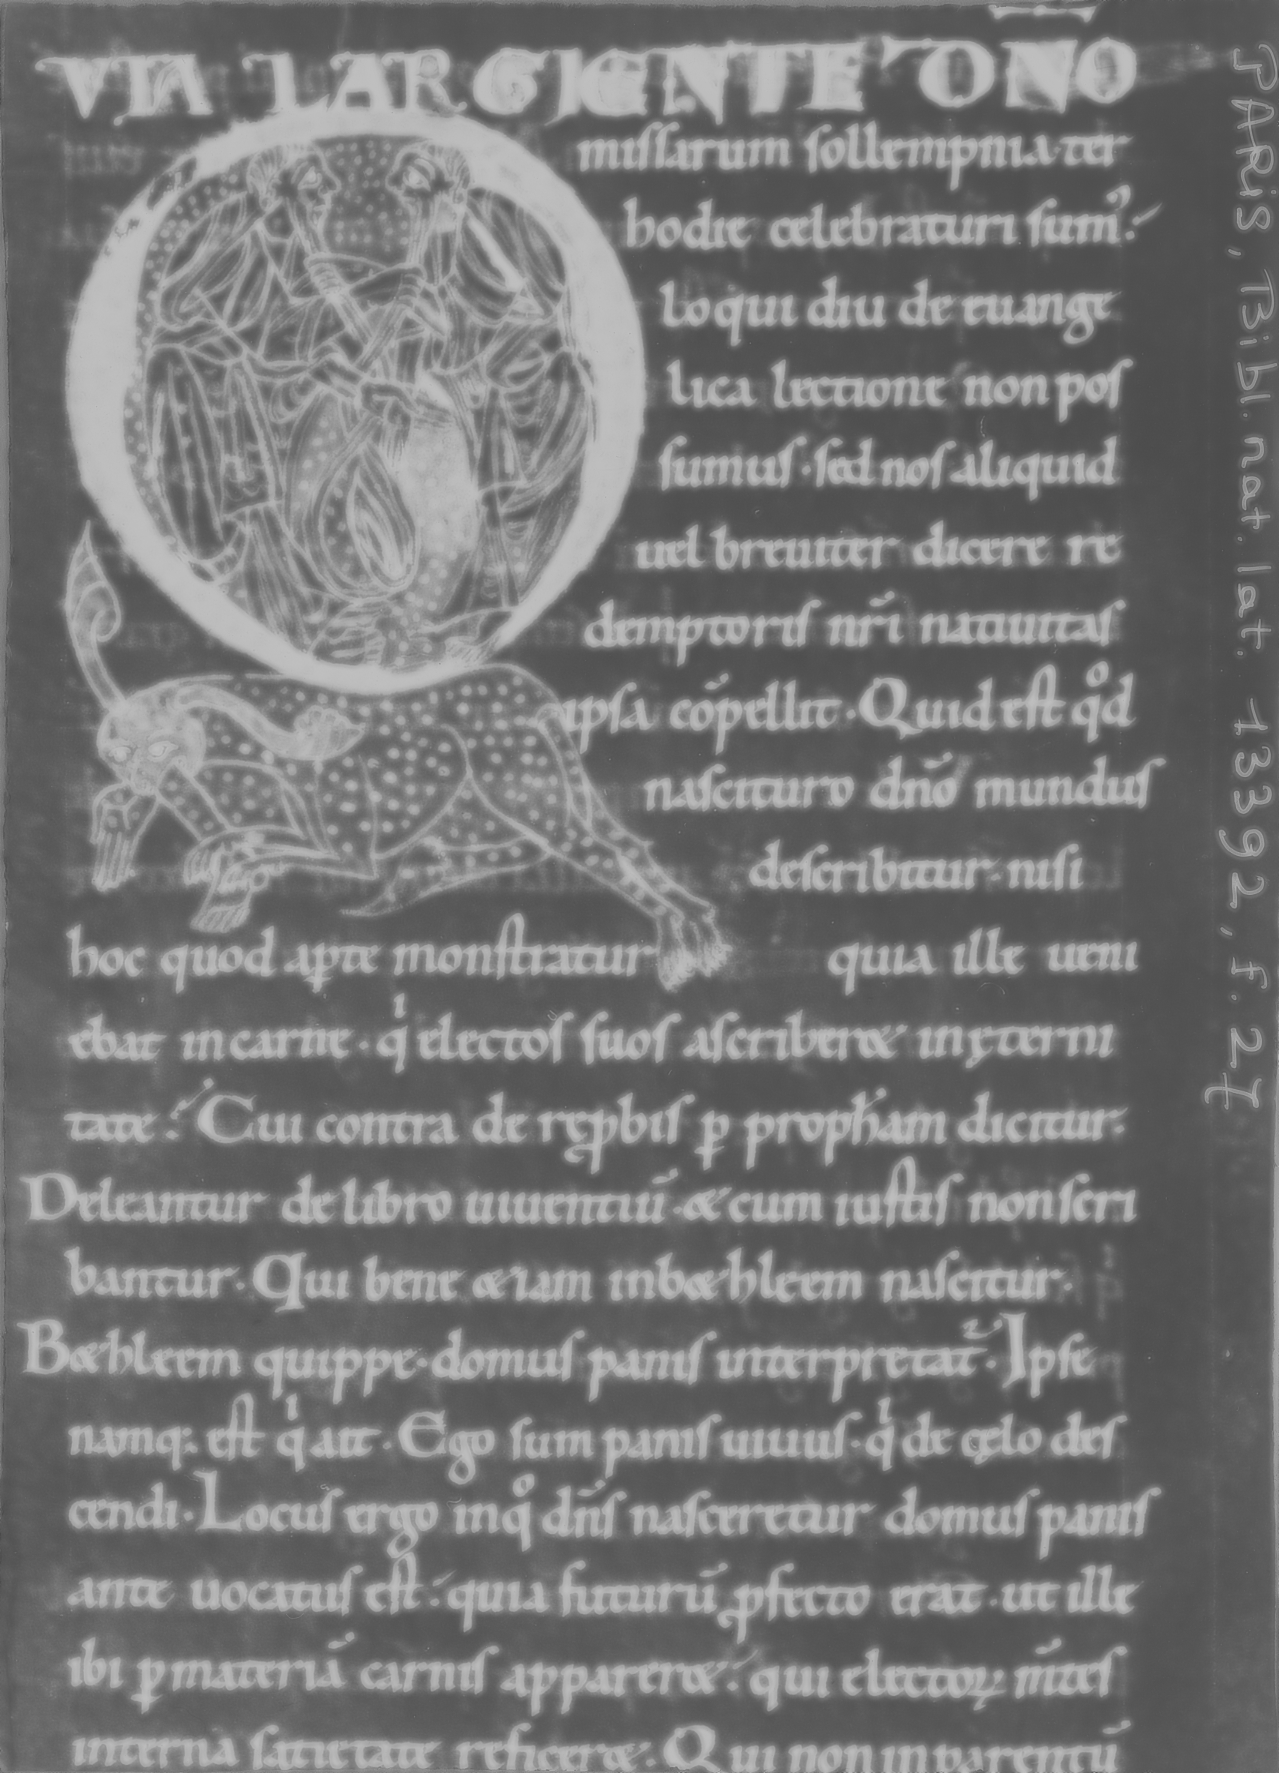 VIA LARGIENTE DNO
missarum sollempnia ter
hodie celebraturi sumꝰ.
loqui diu de euange
lica lectione non pos
sumus · sed nos aliquid
uel breuiter dicere re
demptoris nr̄i natiuitas
ipsa cōpellit · Quid est qͦd
nascituro dn̄o mundus
describitur · nisi
hoc quod aꝑte monstratur quia ille ueni
ebat in carne · qⁱ electos suos ascriber& in ęterni
tate. Cui contra de reꝓbis ꝑ proph̄am dicitur.
Deleantur de libro uiuentiū · & cum iustis non scri
bantur · Qui bene &iam in b&hleem nascitur.
B&hleem quippe · domus panis interpretat̄ · Ipse
namq; est qⁱ ait · Ego sum panis uiuus · qⁱ de cęlo des
cendi · Locus ergo in qͦ dn̄s nasceretur domus panis
ante uocatus est. quia futurū ꝓfecto erat · ut ille
ibi ꝑ materiā carnis apparer&. qui electoꝝ m̄tes
interna satietate reficer&. Qui non in parentū
PARIS, Bibl. nat. lat. 13392, f. 27